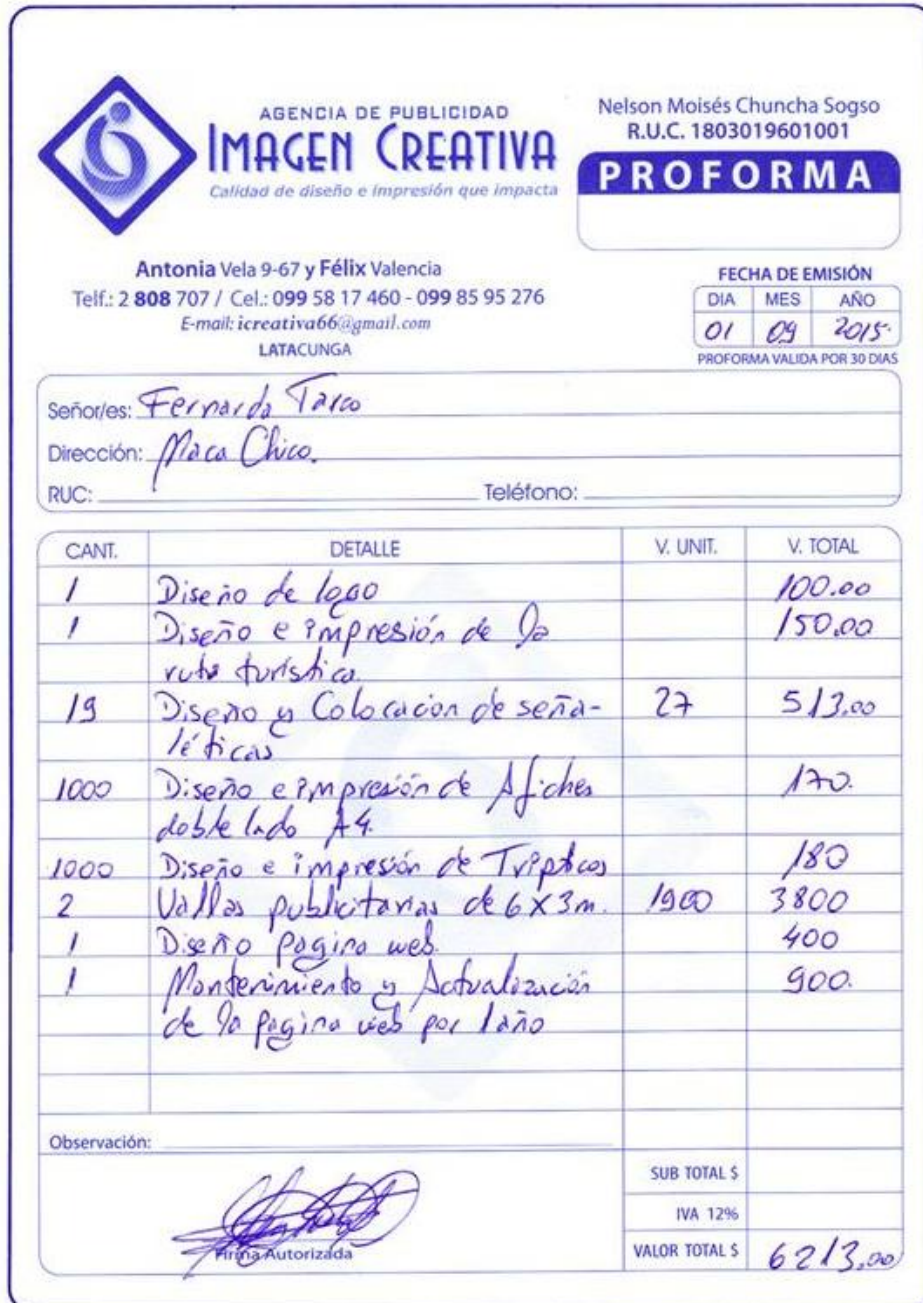 AGENCIA DE PUBLICIDAD
IMAGEN CREATIVA
Calidad de diseño e impresión que impacta
Nelson Moisés Chuncha Sogso
R.U.C. 1803019601001
PROFORMA
Antonia Vela 9-67 y Félix Valencia
Telf.: 2 808 707 / Cel.: 099 58 17 460 - 099 85 95 276
E-mail: icreativa66@gmail.com
LATACUNGA
FECHA DE EMISIÓN
DIA MES AÑO
01 09 2015
PROFORMA VALIDA POR 30 DIAS
Señor/es: Fernanda
Dirección: Maca Chico.
RUC: Teléfono:
CANT. DETALLE V. UNIT. V. TOTAL
1 Diseño de logo 100.00
1 Diseño e impresión de la 150.00
ruta turística.
19 Diseño y Colocacion de seña- 27 513.00
léticas
1000 Diseño e impresión de Afiches 170.
doble lado A4.
1000 Diseño e impresión de Trípticos 180
2 Vallas publicitarias de 6X3m. 1900 3800
1 Diseño pagina web. 400
1 Mantenimiento y Actualización 900.
de la pagina web por 1 año
Observación:
SUB TOTAL $
IVA 12%
Firma Autorizada
VALOR TOTAL $ 6213,00